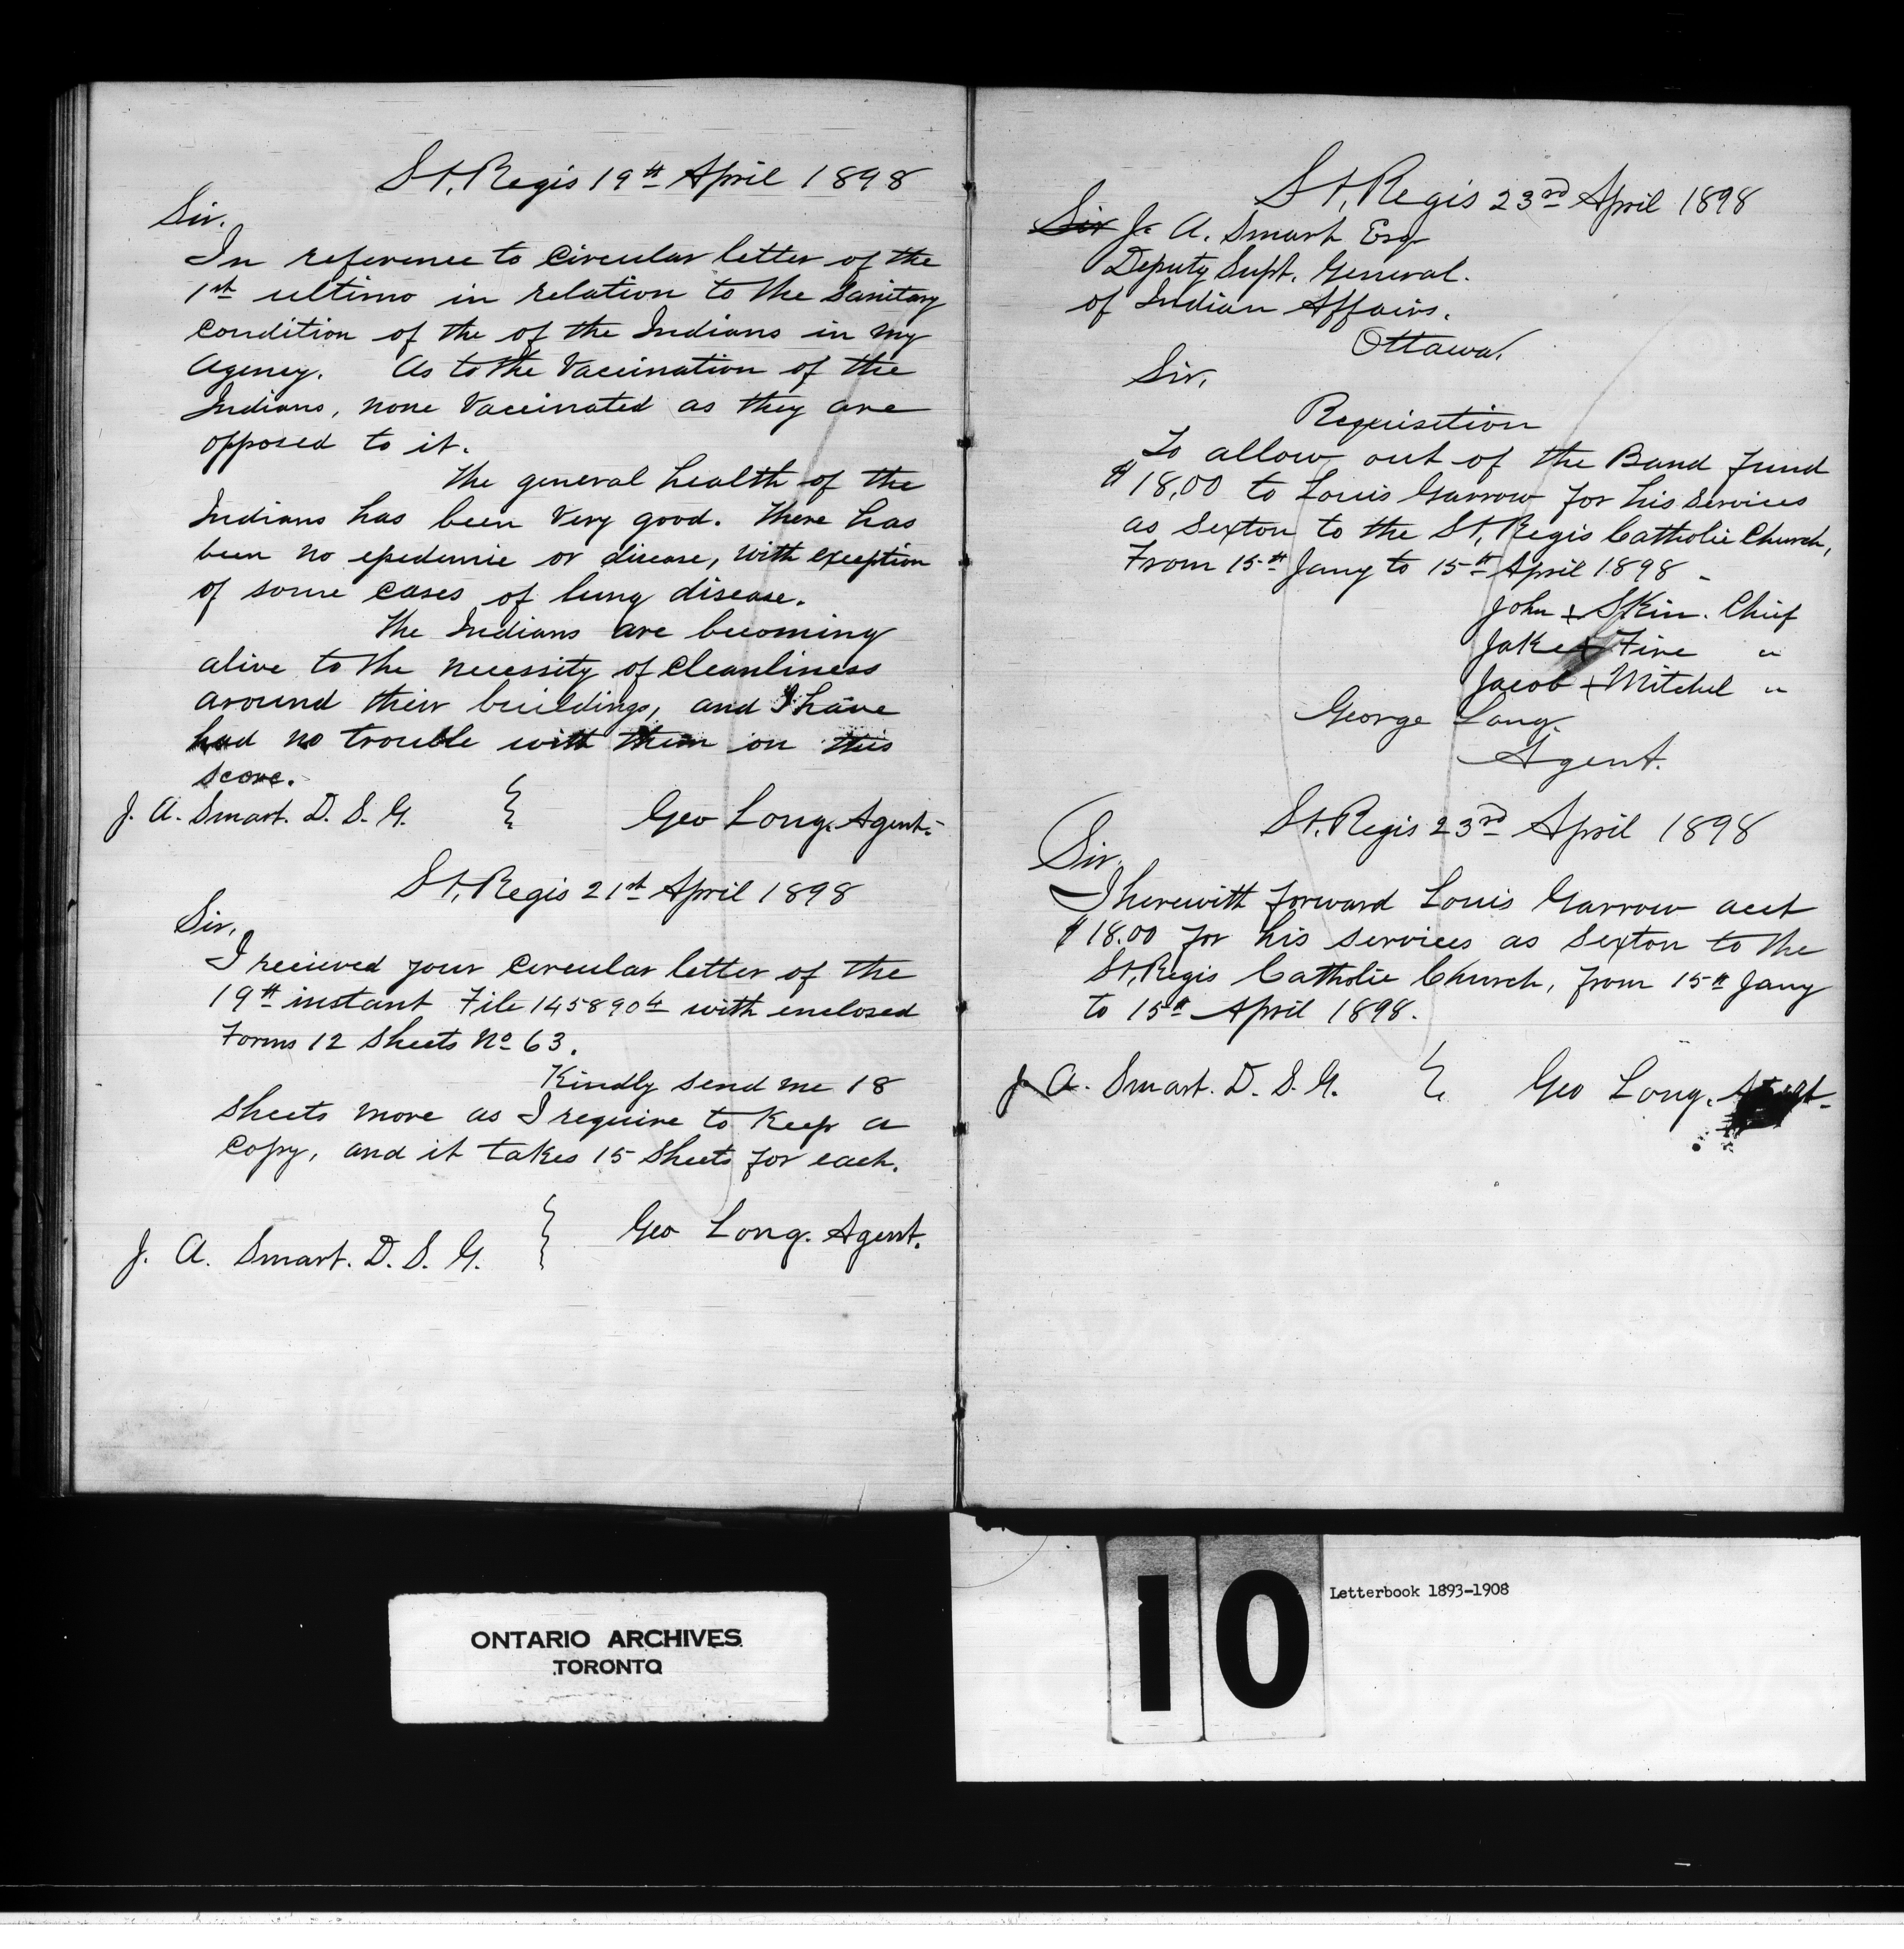 St, Regis 19th April 1898
Sir.
In reference to Circular letter of the
1st ultimo in relation to the Sanitary
Condition of the of the Indians in my
Agency. As to the Vaccination of the
Indians, none Vaccinated as they are
opposed to it.
The general health of the
Indians has been Very good. There has
been no epedemic or disease, with exception
of some cases of lung disease.
The Indians are becoming
alive to the necessity of Cleanliness
around their buildings, and I have
had no trouble with them on this
score.
J. A. Smart. D. S. G. } Geo Long. Agent.
St, Regis 21st April 1898
Sir,
I recieved your Circular letter of the
19th instant File 145890 4 with enclosed
Forms 12 Sheets No 63.
Kindly send me 18
Sheets more as I require to Keep a
Copy, and it takes 15 Sheets for each.
J. A. Smart. D. S. G. } Geo Long. Agent.
St, Regis 23rd April 1898
Sir J. A. Smart Esq
Deputy Supt. General.
of Indian Affairs.
Ottawa.
Sir,
Requisition
To allow out of the Band Fund
$18,00 to Louis Garrow for his Services
as Sexton to the St, Regis Catholic Church,
From 15th Jany to 15th April 1898 -
John + Skin. Chief
Jake + Fire "
Jacob + Mitchel "
George Long.
Agent.
St, Regis 23rd April 1898
Sir,
I herewith forward Louis Garrow acct
$18.00 for his services as Sexton to the
St, Regis Catholic Church, from 15th Jany
to 15th April 1898.
J. A. Smart. D. S. G. } Geo Long. Agent.
ONTARIO ARCHIVES
TORONTO
10
Letterbook 1893-1908